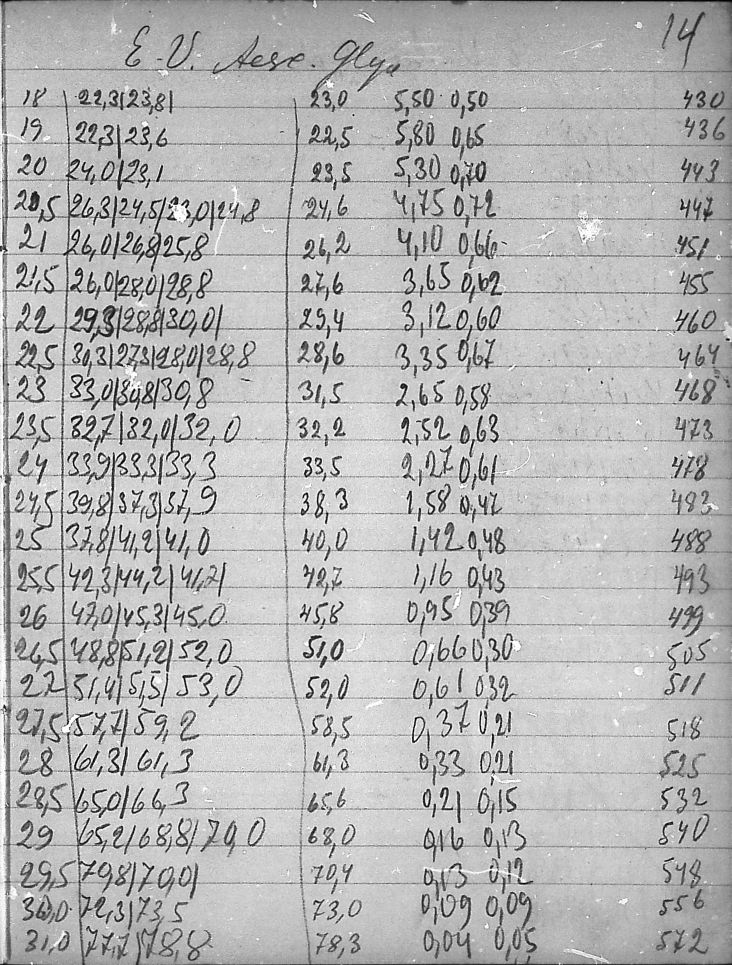 14
E. V. Aesc. Glya
18 22,3|23,8| 23,0 5,50 0,50 430
19 22,3|23,6 22,5 5,80 0,65 436
20 24,0|23,1 23,5 5,30 0,70 443
20,5 26,3|24,5|23,0|24,8 24,6 4,75 0,72 447
21 26,0|26,8|25,8 26,2 4,10 0,66 451
21,5 26,0|28,0|28,8 27,6 3,65 0,62 455
22 29,3|28,8|30,0| 29,4 3,12 0,60 460
22,5 30,3|27,3|28,0|28,8 28,6 3,35 0,67 464
23 33,0|30,8|30,8 31,5 2,65 0,58 468
23,5 32,7|32,0|32,0 32,2 2,52 0,63 473
24 33,9|33,3|33,3 33,5 2,27 0,61 478
24,5 39,8|37,3|37,9 38,3 1,58 0,47 483
25 37,8|41,2|41,0 40,0 1,42 0,48 488
25,5 42,3|44,2|41,7| 42,7 1,16 0,43 493
26 47,0|45,3|45,0 45,8 0,95 0,39 499
26,5 48,8|51,2|52,0 51,0 0,66 0,30 505
27 51,4|5,5|53,0 52,0 0,61 0,32 511
27,5 57,7|59,2 58,5 0,37 0,21 518
28 61,3|61,3 61,3 0,33 0,21 525
28,5 65,0|66,3 65,6 0,21 0,15 532
29 65,2|68,8|70,0 68,0 0,16 0,13 540
29,5 70,8|70,0| 70,4 0,13 0,12 548
30,0 72,3|73,5 73,0 0,09 0,09 556
31,0 77,7|78,8 78,3 0,04 0,05 572